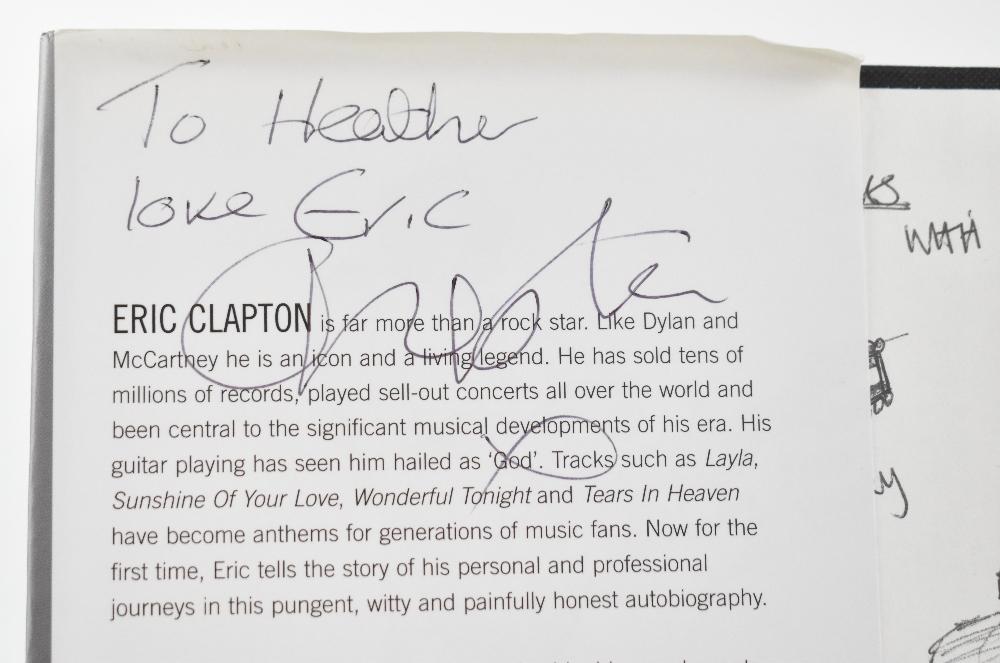 To Heather
love Eric
Clapton
x
ERIC CLAPTON is far more than a rock star. Like Dylan and
McCartney he is an icon and a living legend. He has sold tens of
millions of records, played sell-out concerts all over the world and
been central to the significant musical developments of his era. His
guitar playing has seen him hailed as ‘God’. Tracks such as Layla,
Sunshine Of Your Love, Wonderful Tonight and Tears In Heaven
have become anthems for generations of music fans. Now for the
first time, Eric tells the story of his personal and professional
journeys in this pungent, witty and painfully honest autobiography.
WITH